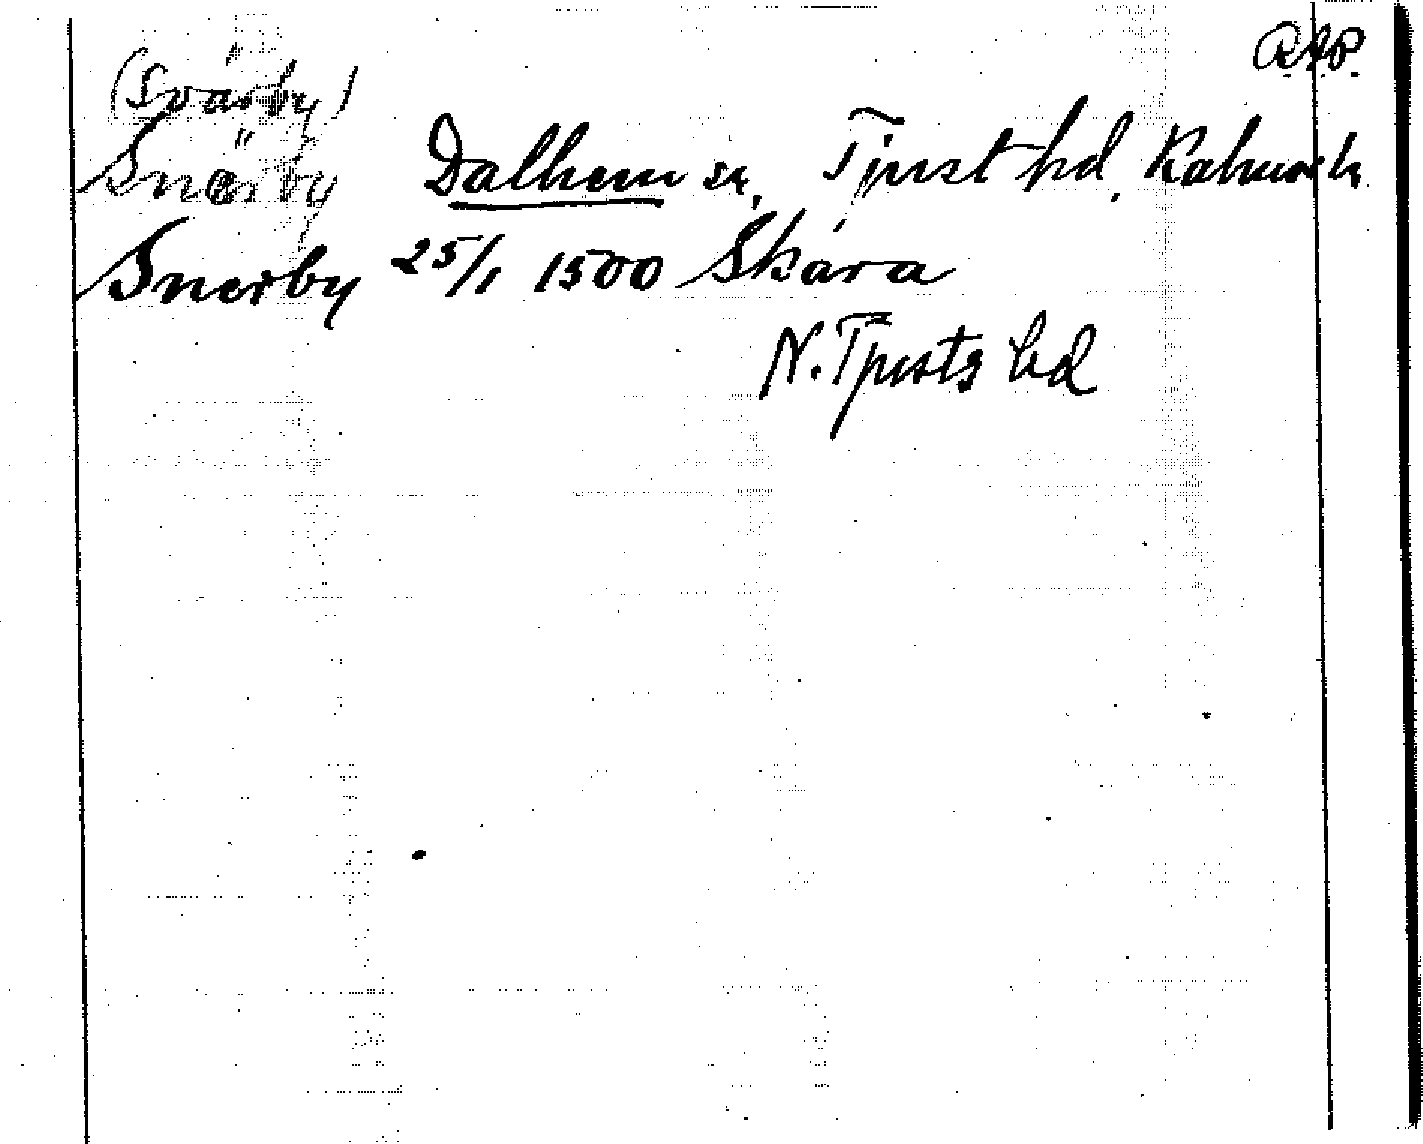 R.A.P.
(Svärby)
Snärby Dalhem sn, Tjust hd, Kalmar l.
Snerby 25/1 1500 Skara
N. Tjusts hd